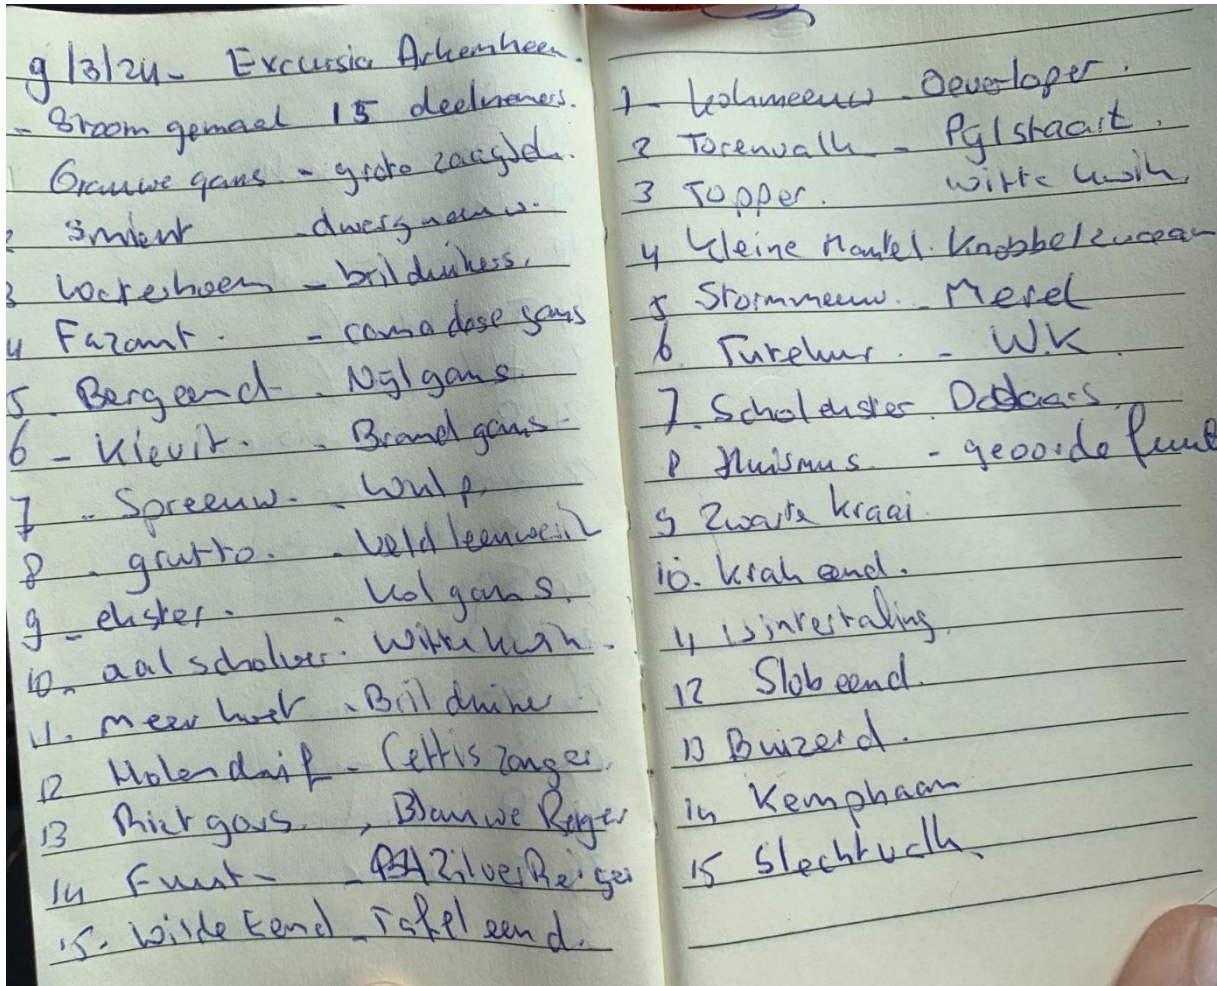 9/3/24 - Excursie Arkemheen.
- Stoom gemaal 15 deelnemers.
1 Grauwe gans - grote zaagbek.
2 Smient - dwergmeeuw.
3 Waterhoen - brilduikers.
4 Fazant. - canadase gans
5. Bergeend - Nijlgans
6 - Kievit. - Brandgans -
7 - Spreeuw. - Wulp.
8 - grutto. - Veldleeuwerik
9 - ekster. - Kolgans.
10. aalscholver. Witte kwik.
11. meerkoet - Brilduiker
12 Holenduif - Cettis zanger.
13 Rietgans. , Blauwe Reiger
14 Fuut - - ZilverReiger
15. Wilde Eend - Tafeleend.
1 - Kokmeeuw - Oeverloper.
2 Torenvalk - Pijlstaart.
3 Topper. witte kwik.
4 Kleine Mantel. Knobbelzwaan
5 Stormmeeuw. - Merel
6 Tureluur. - W.K.
7. Scholekster. Dodaars
8 Huismus. - geoorde fuut
9 Zwarte kraai.
10. krakeend.
11 wintertaling
12 Slobeend.
13 Buizerd.
14 Kemphaan
15 Slechtvalk.